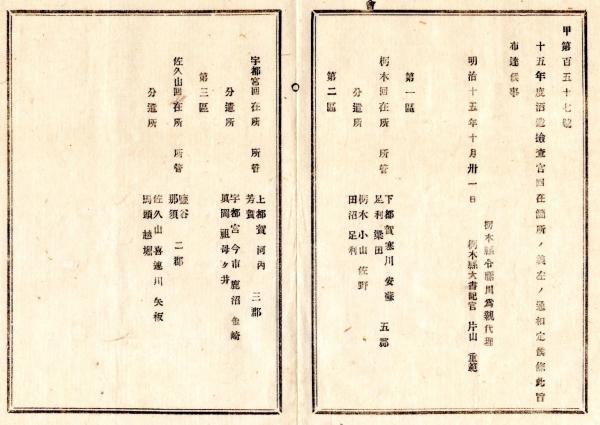 甲第百五十七號
十五年度酒造撿查官回在箇所ノ義左ノ通相定候條此旨
布達候事
明治十五年十月卅一日
栃木縣令藤川爲親代理
栃木縣大書記官 片山重範
第一區
栃木回在所 所管
下都賀 寒川 安蘇
足利 梁田
五郡
分遣所
栃木 小山 佐野
田沼 足利
第二區
宇都宮回在所 所管
上都賀 河内
芳賀
三郡
分遣所
宇都宮 今市 鹿沼 金崎
眞岡 祖母ヶ井
第三區
佐久山回在所 所管
鹽谷
那須
二郡
分遣所
佐久山 喜連川 矢板
馬頭 越堀